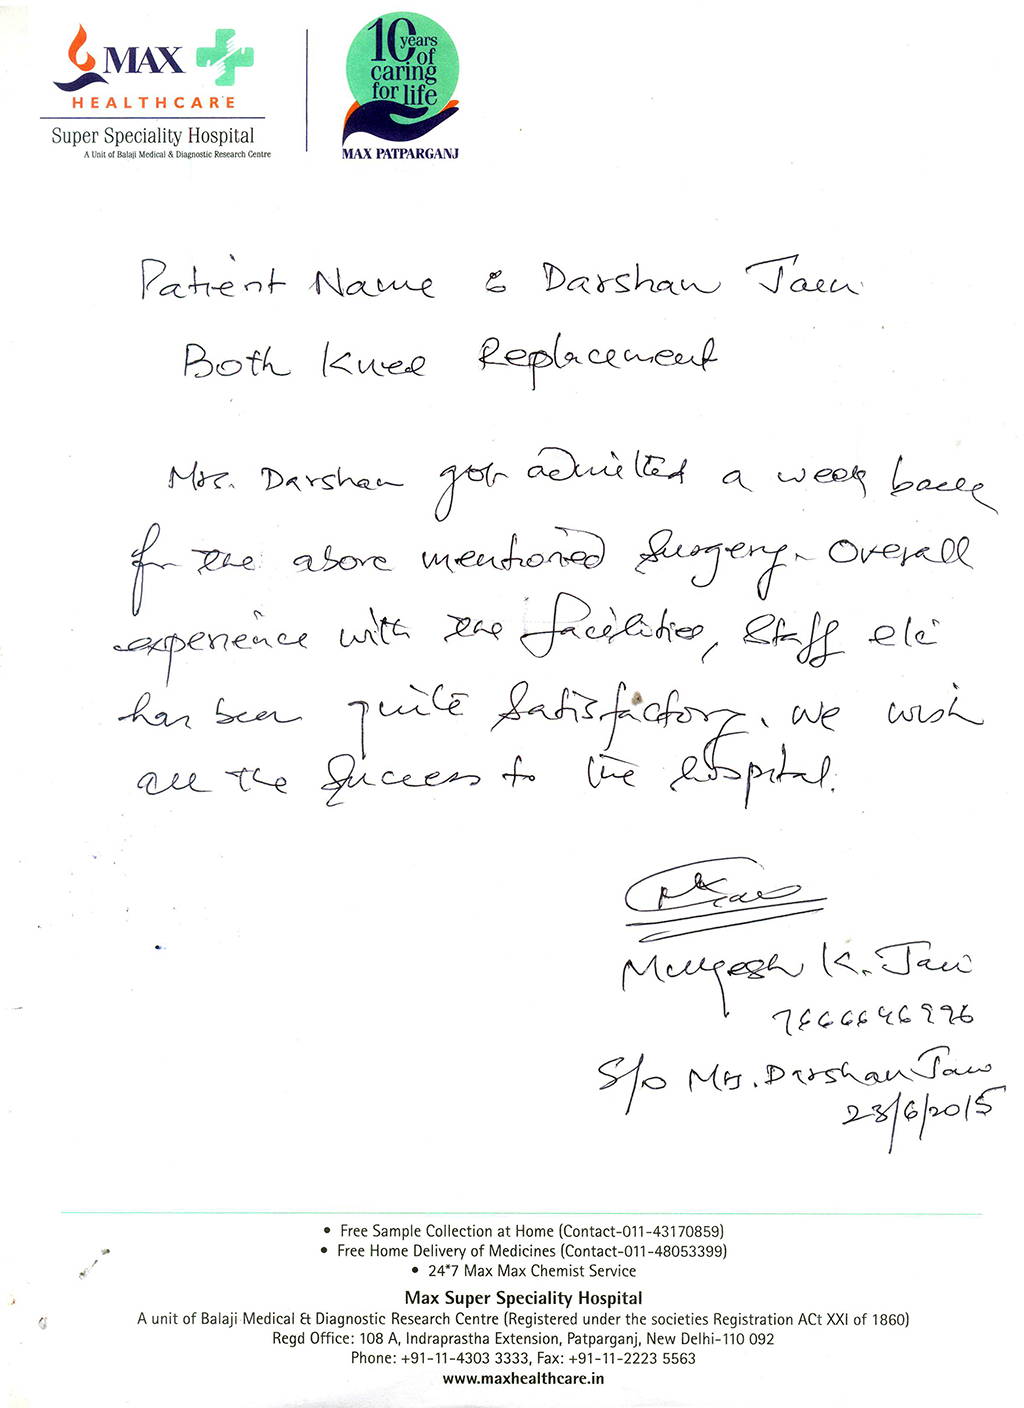 MAX
HEALTHCARE
Super Speciality Hospital
A Unit of Balaji Medical & Diagnostic Research Centre
10 years
of
caring
for life
MAX PATPARGANJ
Patient Name : Darshan Jain
Both Knee Replacement
Mrs. Darshan got admitted a week back
for the above mentioned surgery. Overall
experience with the facilities, staff etc
has been quite satisfactory. We wish
all the success to the hospital.
K. Jain
S/o Mrs. Darshan Jain
23/6/2015
• Free Sample Collection at Home (Contact-011-43170859)
• Free Home Delivery of Medicines (Contact-011-48053399)
• 24*7 Max Max Chemist Service
Max Super Speciality Hospital
A unit of Balaji Medical & Diagnostic Research Centre (Registered under the societies Registration ACt XXI of 1860)
Regd Office: 108 A, Indraprastha Extension, Patparganj, New Delhi-110 092
Phone: +91-11-4303 3333, Fax: +91-11-2223 5563
www.maxhealthcare.in